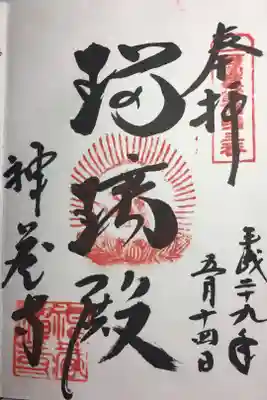 奉拝
平成二十九年
五月十四日
瑠璃殿
神蔵寺